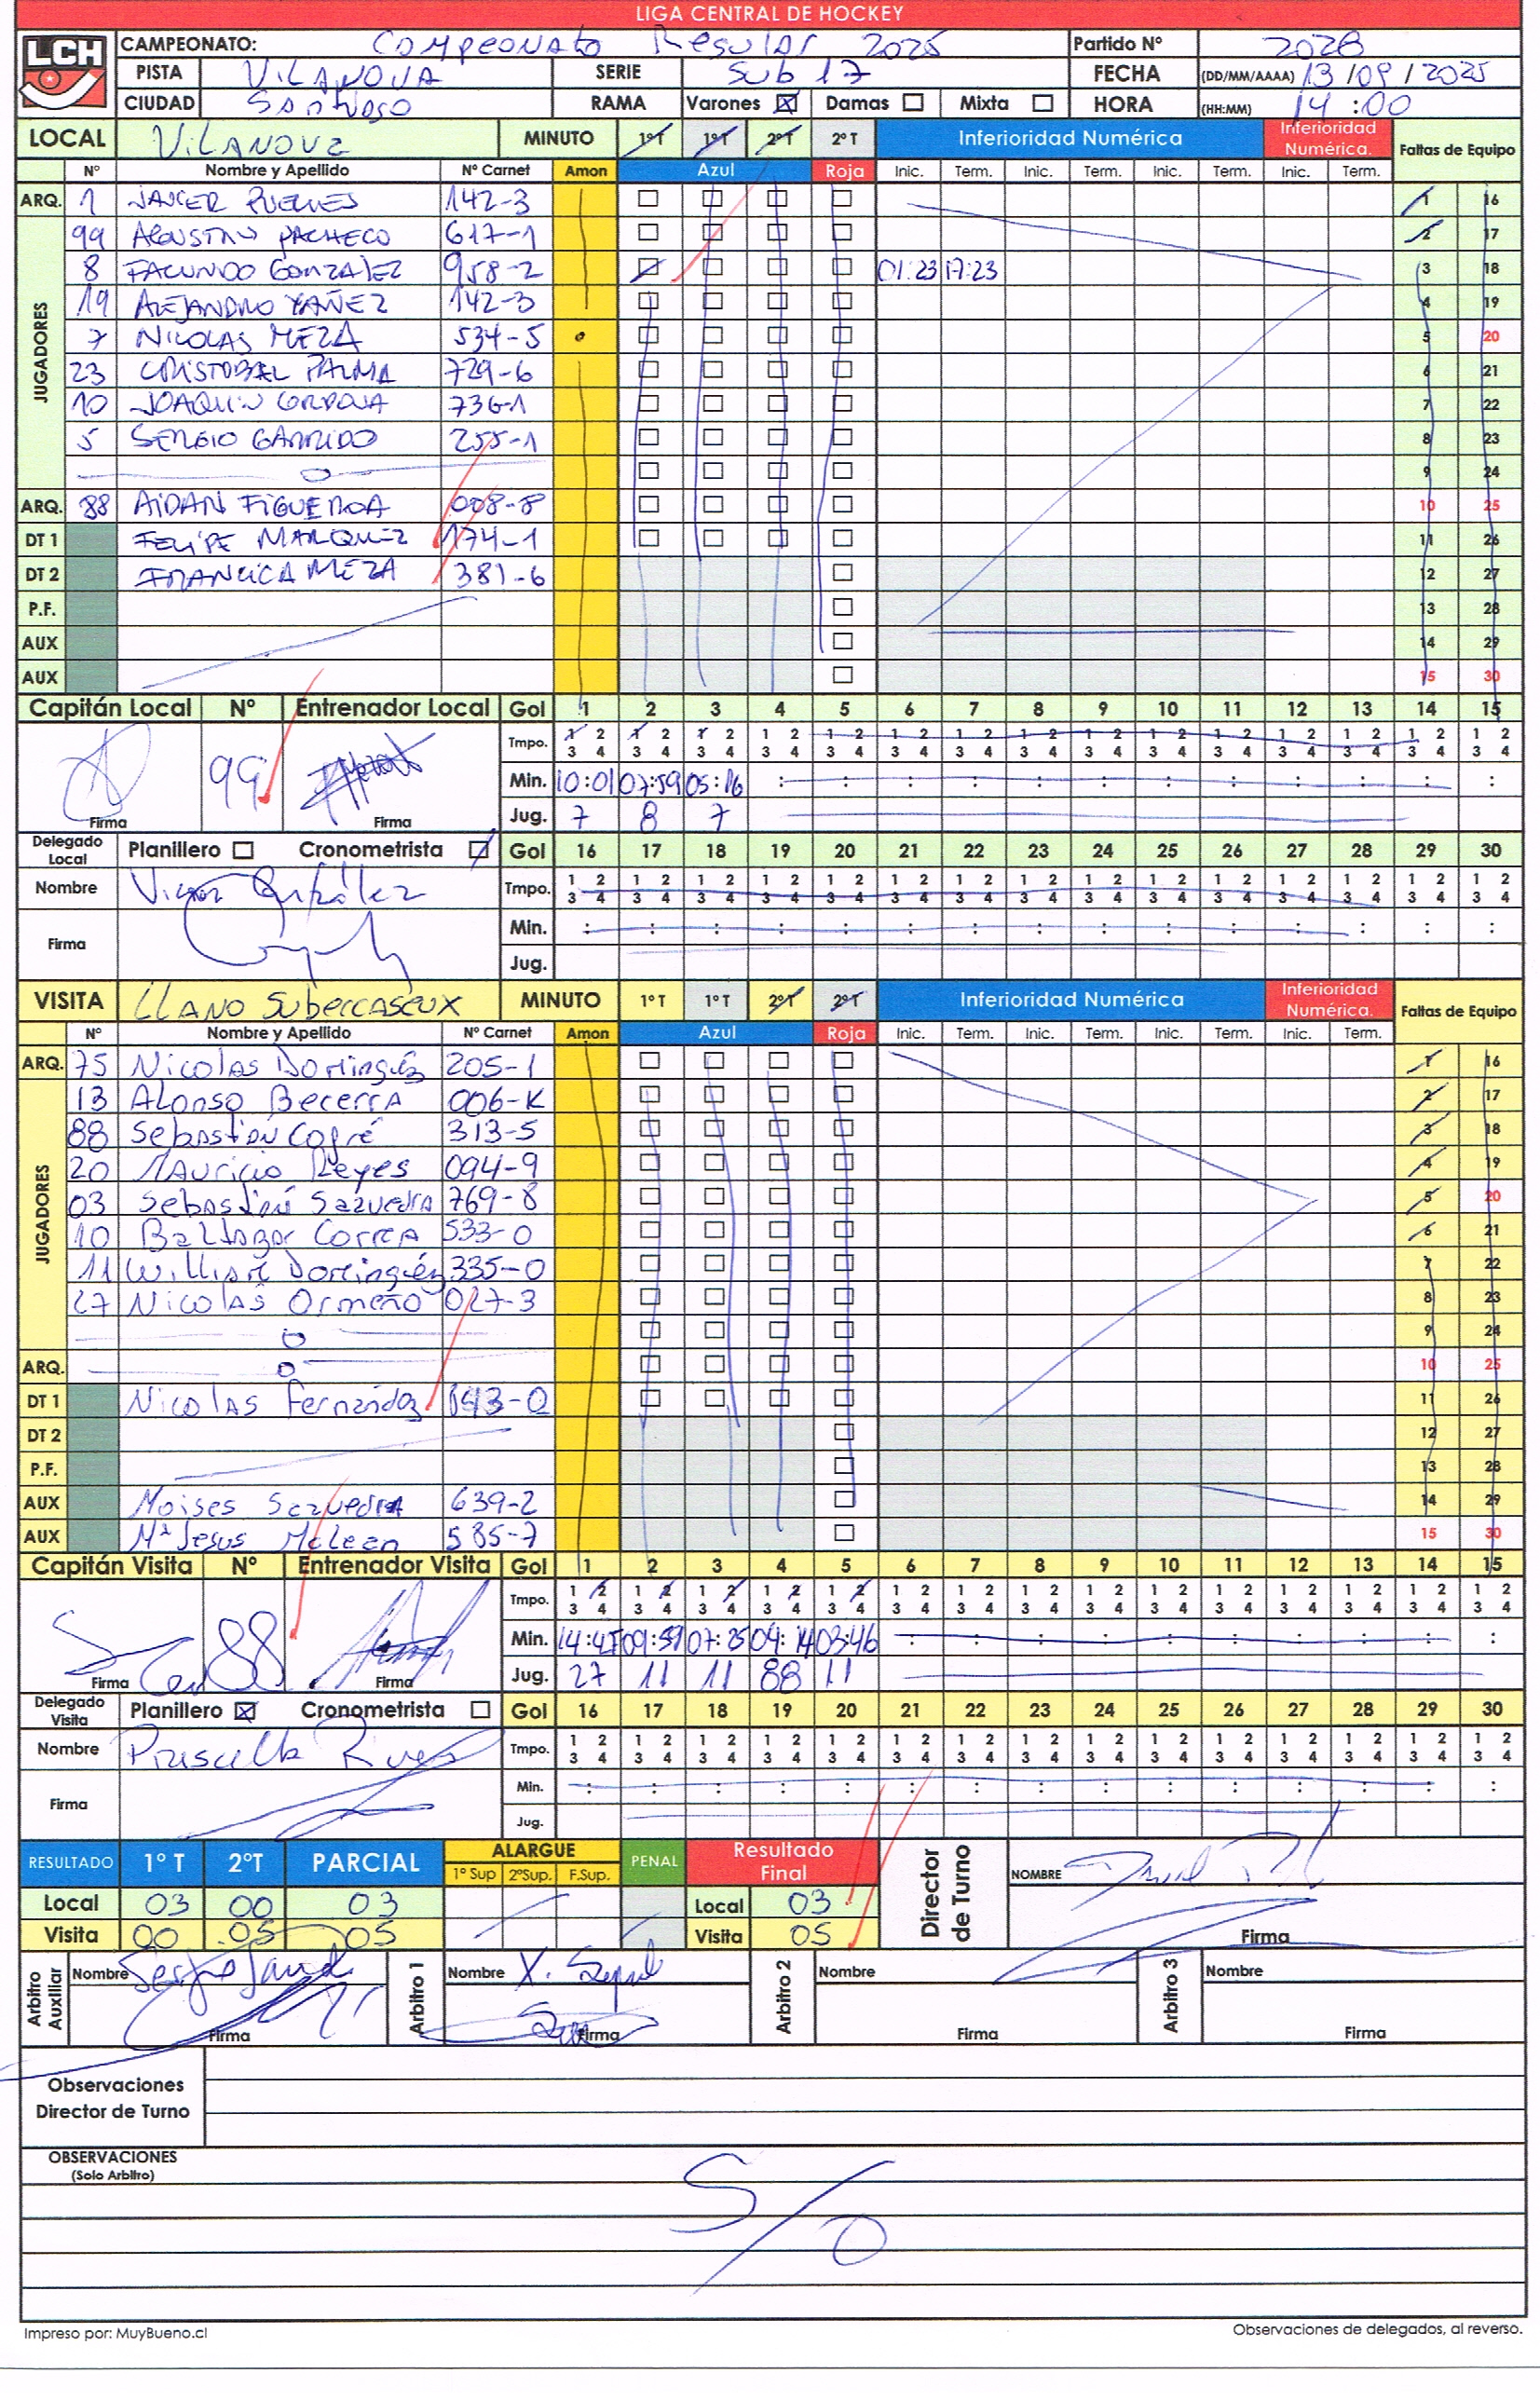 LIGA CENTRAL DE HOCKEY
LCH
CAMPEONATO: Campeonato Regular 2025 Partido Nº 2028
PISTA VILANOVA SERIE Sub 17 FECHA (DD/MM/AAAA) 13/09/2025
CIUDAD Santiago RAMA Varones Damas Mixta HORA (HH:MM) 14:00
LOCAL VILANOVA MINUTO 1º T 1º T 2º T 2º T Inferioridad Numérica Inferioridad Numérica. Faltas de Equipo
Nº Nombre y Apellido Nº Carnet Amon Azul Roja Inic. Term. Inic. Term. Inic. Term. Inic. Term.
ARQ. 1 142-3 1 16
JUGADORES
99 AGUSTIN PACHECO 617-1 2 17
8 FACUNDO GONZALEZ 958-2 01:23 17:23 3 18
19 ALEJANDRO YAÑEZ 142-3 4 19
7 NICOLAS MEZA 534-5 5 20
23 CRISTOBAL PALMA 729-6 6 21
10 JOAQUIN CORDOVA 736-1 7 22
5 SERGIO GARRIDO 255-1 8 23
9 24
ARQ. 88 AIDAN FIGUEROA 008-8 10 25
DT 1 FELIPE MARQUEZ 174-1 11 26
DT 2 MEZA 381-6 12 27
P.F. 13 28
AUX 14 29
AUX 15 30
Capitán Local Nº Entrenador Local Gol 1 2 3 4 5 6 7 8 9 10 11 12 13 14 15
Tmpo. 1 2 1 2 1 2 1 2 1 2 1 2 1 2 1 2 1 2 1 2 1 2 1 2 1 2 1 2 1 2
3 4 3 4 3 4 3 4 3 4 3 4 3 4 3 4 3 4 3 4 3 4 3 4 3 4 3 4 3 4
99 Min. 10:01 07:59 05:16 : : : : : : : : : : : :
Firma Firma Jug. 7 8 7
Delegado Local Planillero Cronometrista Gol 16 17 18 19 20 21 22 23 24 25 26 27 28 29 30
Nombre Victor González Tmpo. 1 2 1 2 1 2 1 2 1 2 1 2 1 2 1 2 1 2 1 2 1 2 1 2 1 2 1 2 1 2
3 4 3 4 3 4 3 4 3 4 3 4 3 4 3 4 3 4 3 4 3 4 3 4 3 4 3 4 3 4
Firma Min. : : : : : : : : : : : : : : :
Jug.
VISITA LLANO Subercaseux MINUTO 1º T 1º T 2º T 2º T Inferioridad Numérica Inferioridad Numérica. Faltas de Equipo
Nº Nombre y Apellido Nº Carnet Amon Azul Roja Inic. Term. Inic. Term. Inic. Term. Inic. Term.
ARQ. 75 Nicolas Dominguéz 205-1 1 16
JUGADORES
13 Alonso Becerra 006-K 2 17
88 Sebastián Cofré 313-5 3 18
20 Mauricio Reyes 094-9 4 19
03 Sebastián Saavedra 769-8 5 20
10 Baltazar Correa 533-0 6 21
11 William Dominguéz 335-0 7 22
27 Nicolas Ormeño 027-3 8 23
9 24
ARQ. 10 25
DT 1 Nicolas Fernández 11 26
DT 2 12 27
P.F. 13 28
AUX Moises Saavedra 639-2 14 29
AUX Mª Jesus Mclean 585-7 15 30
Capitán Visita Nº Entrenador Visita Gol 1 2 3 4 5 6 7 8 9 10 11 12 13 14 15
Tmpo. 1 2 1 2 1 2 1 2 1 2 1 2 1 2 1 2 1 2 1 2 1 2 1 2 1 2 1 2 1 2
3 4 3 4 3 4 3 4 3 4 3 4 3 4 3 4 3 4 3 4 3 4 3 4 3 4 3 4 3 4
88 Min. 09: 07: 04:14 03:46 : : : : : : : : : :
Firma Firma Jug. 27 11 11 88 11
Delegado Visita Planillero Cronometrista Gol 16 17 18 19 20 21 22 23 24 25 26 27 28 29 30
Nombre Priscilla Tmpo. 1 2 1 2 1 2 1 2 1 2 1 2 1 2 1 2 1 2 1 2 1 2 1 2 1 2 1 2 1 2
3 4 3 4 3 4 3 4 3 4 3 4 3 4 3 4 3 4 3 4 3 4 3 4 3 4 3 4 3 4
Firma Min. : : : : : : : : : : : : : : :
Jug.
RESULTADO 1º T 2ºT PARCIAL ALARGUE PENAL Resultado Final Director de Turno NOMBRE
1º Sup 2ºSup. F.Sup.
Local 03 00 03 Local 03
Visita 00 05 05 Visita 05 Firma
Arbitro Auxiliar Nombre Arbitro 1 Nombre Arbitro 2 Nombre Arbitro 3 Nombre
Firma Firma Firma Firma
Observaciones
Director de Turno
OBSERVACIONES
(Solo Arbitro)
S/O
Impreso por: MuyBueno.cl Observaciones de delegados, al reverso.